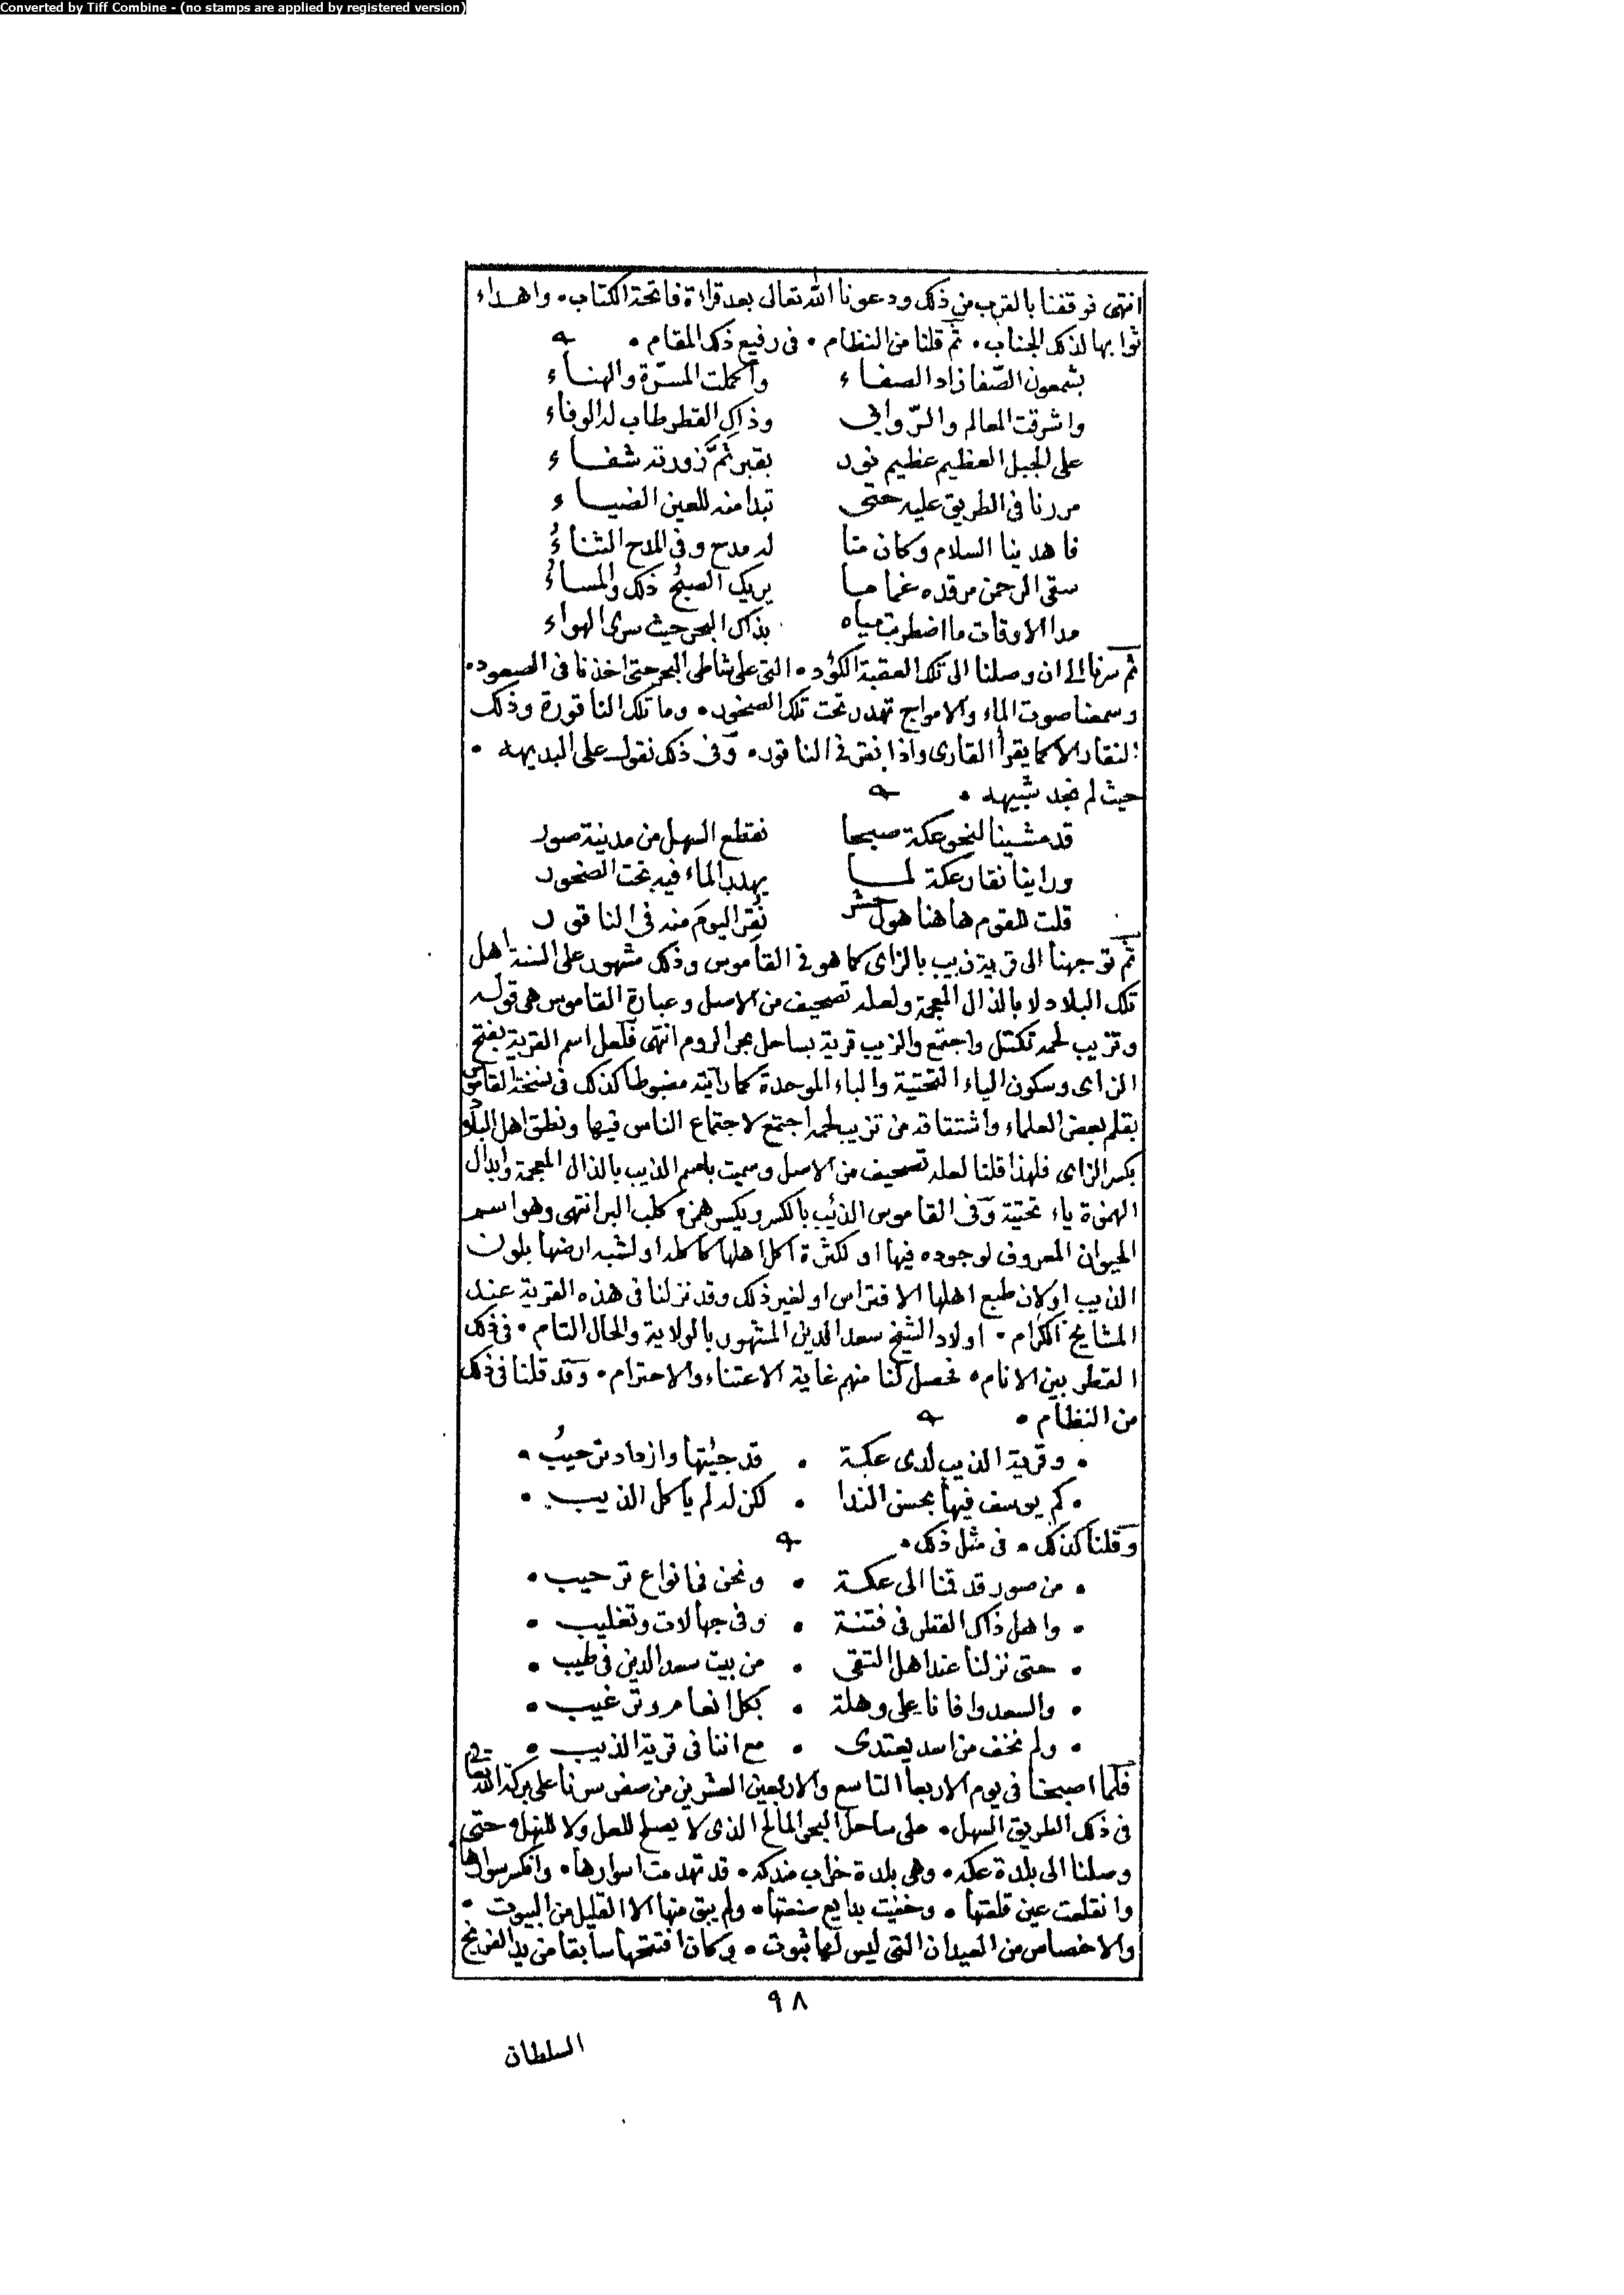 Converted by Tiff Combine - (no stamps are applied by registered version)
انتهى فوقفنا بالقرب من ذلك ودعونا الله تعالى بعد قراءة فاتحة الكتاب • واهداء
ثوابها لذلك الجناب • ثم قلنا من النظام • فى رفيع ذلك المقام •
بشمعون الصّفا زاد الصفاء وأكملت المسرّة والهناء
واشرقت المعالم والرّوابى وذاك القطر طاب له الوفاء
على الجبل العظيم عظيم نور بقبر ثمَّ زورته شفاء
مررنا فى الطريق عليه حتى تبدا منه للعين الضياء
فاهدينا السلام وكان منا له مدح وفى المدح الثناءُ
سقى الرحمن مرقده غماما يريك الصبحُ ذلك والمساءُ
مدا الاوقات ما اضطربت مياه بذاك البحر حيث سرى الهواء
ثم سرنا الى ان وصلنا الى تلك العقبة الكؤد • التى على شاطى البحر حتى اخذنا فى الصعود •
وسمعنا صوت الماء والامواج تهدر تحت تلك الصخور • وما تلك الناقورة وذلك
النقار الا كما يقرأ القارى واذا نقر فى الناقور • وفى ذلك نقول على البديهه •
حيث لم نجد شبيهه •
قد مشينا لنحو عكة صبحا نقطع السهل من مدينة صور
وراينا نقار عكة لمـــا يهدر الماء فيه تحت الصخور
قلت للقوم هاهنا هول حشر نُقِرَ اليومَ منه فى الناقور
ثم توجهنا الى قرية زيب بالزاى كما هو فى القاموس وذلك مشهور على السنة اهل
تلك البلاد لا بالذال المعجمة ولعله تصحيف من الاصل وعبارة القاموس هى قوله
وتزيب لحمه تكتل واجتمع والزيب قرية بساحل بحر الروم انتهى فلعل اسم القرية بفتح
الزاى وسكون الياء التحتية والباء الموحدة كما رايته مضبوطا كذلك فى نسخة القاموس
بقلم بعض العلماء واشتقاقه من تزيب لحمه اجتمع لاجتماع الناس فيها ونطق اهل البلاد
بكسر الزاى فلهذا قلنا لعله تصحيف من الاصل وسميت باسم الذيب بالذال المعجمة وابدال
الهمزة ياء تحتية وفى القاموس الذئب بالكسر ويكسر همزه كلب البر انتهى وهو اسم
الحيوان المعروف لوجوده فيها او لكثرة اكل اهلها كاكله او لشبه ارضها بلون
الذيب او لان طبع اهلها الافتراس او لغير ذلك وقد نزلنا فى هذه القرية عند
المشايخ الكرام • اولاد الشيخ سعد الدين المشهور بالولاية والحال التام • فى ذلك
القطر بين الانام • فحصل لنا منهم غاية الاعتناء والاحترام • وقد قلنا فى ذلك
من النظام •
• وقرية الذيب لدى عكة • قد جيئتها وازداد ترحيبُ •
• كم يوسف فيها بحسن الندا • لكن له لم ياكل الذيب •
وقلنا كذلك • فى مثل ذلك •
• من صور قد قمنا الى عكة • ونحن فى انواع ترحيب •
• واهل ذاك القطر فى فتنة • وفى جهالات وتغليب •
• حتى نزلنا عند اهل التقى • من بيت سعد الدين فى طيب •
• والسعد وافانا على وهلة • بكل انعام وترغيب •
• ولم نخف من اسد يعتدى • مع اننا فى قرية الذيب •
فلما اصبحنا فى يوم الاربعا التاسع والاربعين العشرين من صفر سرنا على بركة الله تعالى
فى ذلك الطريق السهل • على ساحل البحر المالح الذى لا يصلح للعل ولا للنهل • حتى
وصلنا الى بلدة عكه • وهى بلدة خراب مندكه • قد تهدمت اسوارها • وانكسر سوارها
وانقلعت عين قلعتها • وخفيت بدايع صنعتها • ولم يبق منها الا القليل من البيوت •
والاخصاص من العيدان التى ليس لها ثبوت • وكان افتتحها سابقا من يد الفرنج
٩٨
السلطان